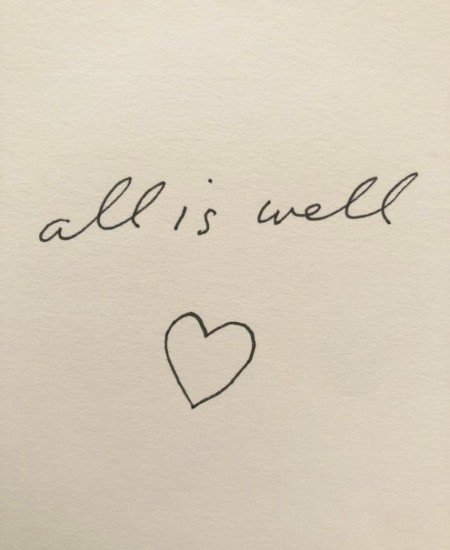 all is well